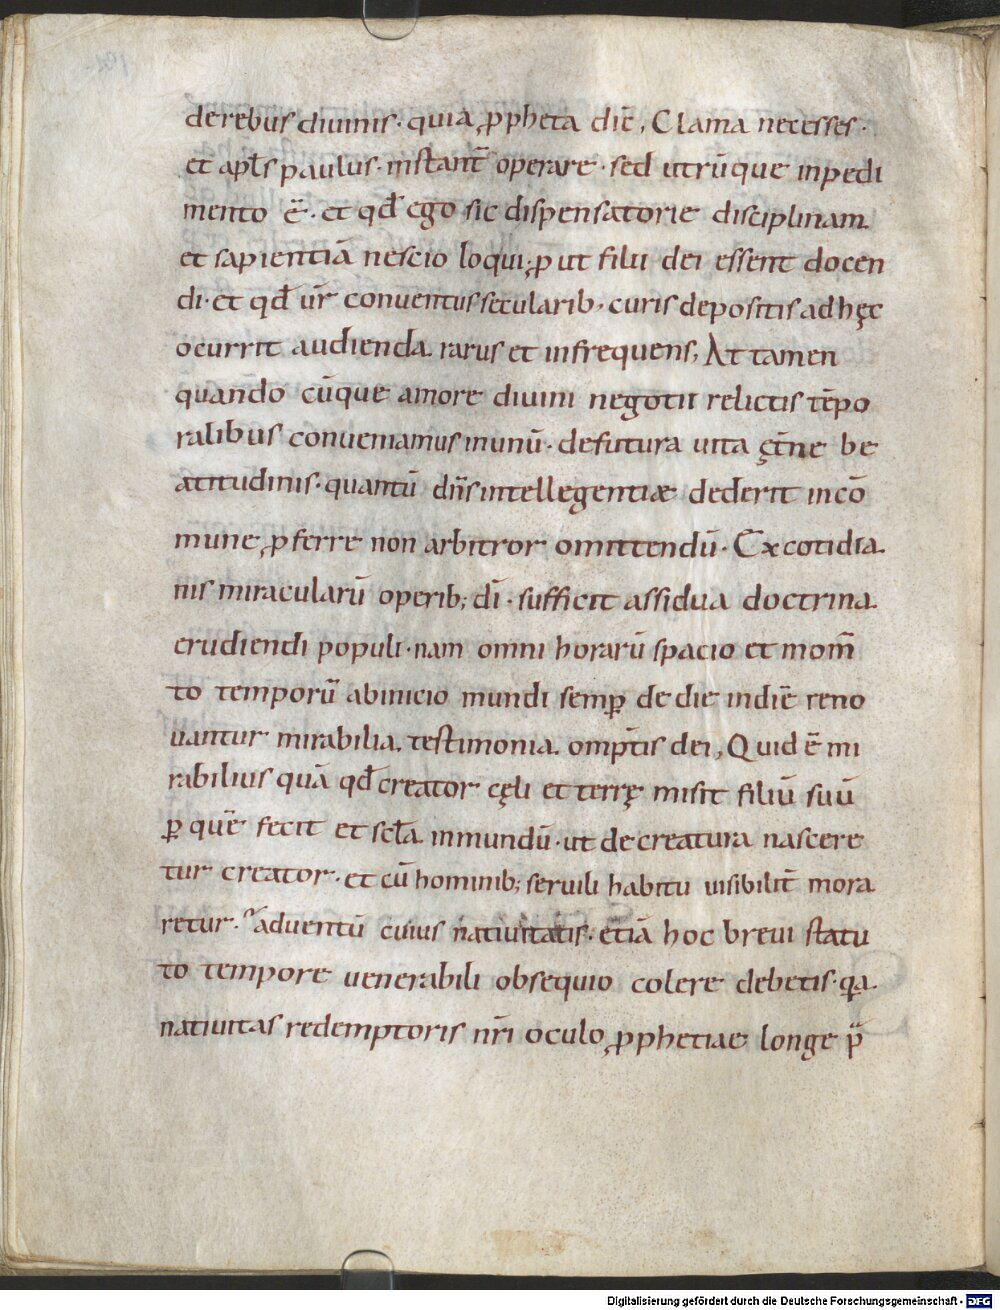 derebus diuinis · quia ꝓpheta dic̄, Clama necesses ·
et apl̄s paulus · instant̄ operare · sed utrūque inpedi
mento ē · et qđ ego sic dispensatorie disciplinam
et sapientiā nescio loqui; ꝓ ut filii dei essent docen
di · et qđ ur̄ conuentus secularib; curis depositis ad hęc
ocurrit audienda rarus et infrequens, At tamen
quando cūque amore diuini negotii relictis tēpo
ralibus conueniamus inunū · defutura uita ęt̄ne be
atitudinis · quantū dn̄s intellegentiæ dederit in cō
mune ꝓferre non arbitror omittendū · Ex cotidia
nis miracularū operib; dī · sufficit assidua doctrina
erudiendi populi · nam omni horarū spacio et mom̄
to temporū abinicio mundi semꝑ de die indiē reno
uantur mirabilia testimonia omp̄tis dei, Quid ē mi
rabilius quā qđ creator cęli et terrę misit filiū suū
ꝑ quē fecit et scl̄a inmundū · ut de creatura nascere
tur creator · et cū hominib; seruili habitu uisibilit̄ mora
retur · aduentū cuius natiuitatis · etiā hoc breui statu
to tempore uenerabili obsequio colere debetis · qa
natiuitas redemptoris nr̄i oculo ꝓphetiae longe p̄
Digitalisierung gefördert durch die Deutsche Forschungsgemeinschaft - DFG